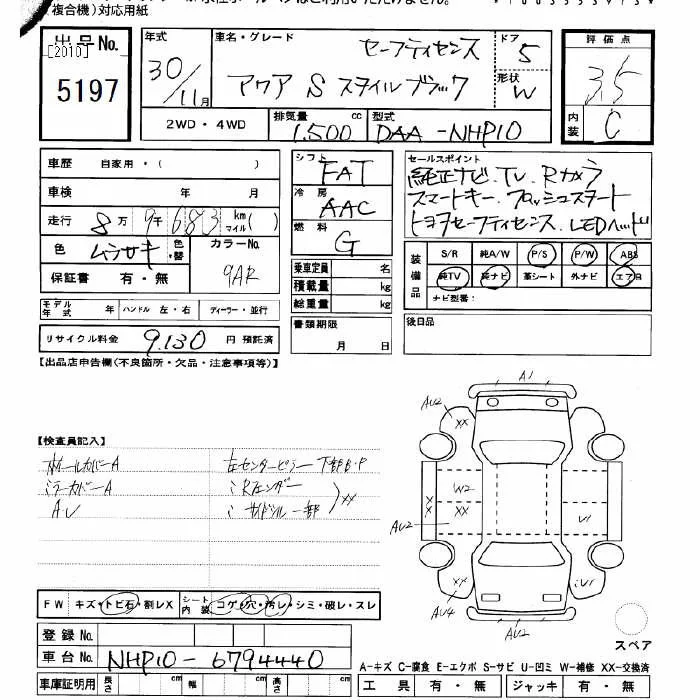 （複合機）対応用紙
出品No.
[2010]
5197
年式
30/11月
車名・グレード
セーフティセンス
アクア S スタイルブラック
ドア
5
形状
W
評価点
3.5
内装
C
2WD・4WD
排気量
1,500 cc
型式
DAA-NHP10
車歴 自家用・( )
車検 年 月
走行 8万9千683 km マイル( )
色 ムラサキ 色替
カラーNo.
9AR
保証書 有・無
モデル年式 年 ハンドル 左・右 ディーラー・並行
リサイクル料金 9,130 円 預託済
シフト
FAT
冷房
AAC
燃料
G
乗車定員 名
積載量 kg
総重量 kg
書類期限
月 日
セールスポイント
純正ナビ.TV.Rカメラ
スマートキー.プッシュスタート
トヨタセーフティセンス.LEDヘッド
装備品
S/R 純A/W P/S P/W ABS
純TV 純ナビ 革シート 外ナビ エアB
ナビ型番:
後日品
【出品店申告欄(不良箇所・欠品・注意事項等)】
【検査員記入】
ホイールカバーA
ミラーカバーA
AU
左センターピラー下部B・P
〃 Rフェンダー
〃 サイドシル一部
XX
A1
AU2
XX
W2
XX
XX
AU2
U1
XX
AU4
U1
AU2
スペア
FW キズ・トビ石・割レX
シート内装 コゲ・穴・汚レ・シミ・破レ・スレ
登録No.
車台No. NHP10-6794440
車庫証明用 長さ cm 幅 cm 高さ cm
A-キズ C-腐食 E-エクボ S-サビ U-凹ミ W-補修 XX-交換済
工具 有・無 ジャッキ 有・無